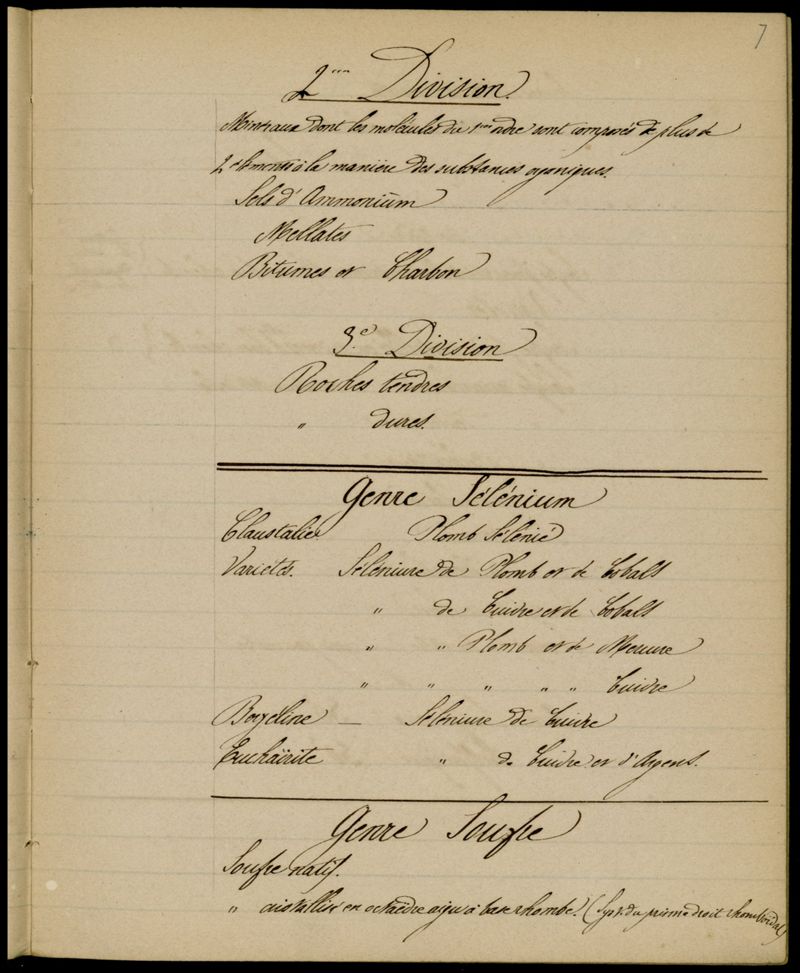 7
2me Division.
Minéraux dont les molécules du 1me ordre sont composés de plus de
2 éléments à la manière des substances organiques.
Sels d'Ammonium
Mellates
Bitumes et Charbon
3e. Division
Roches tendres
" dures.
Genre Sélénium
Claustalie Plomb Sélénié
Variétés. Séléniure de Plomb et de Cobalt
" de Cuivre et de Cobalt
" " Plomb et de Mercure
" " " " " Cuivre
Berzéline — Séléniure de Cuivre
Euchaïrite " de Cuivre et d'Argent.
Genre Soufre
Soufre natif.
" cristallisé en octaèdre aigu à base rhombe. (Syst. du prisme droit rhomboïdal)